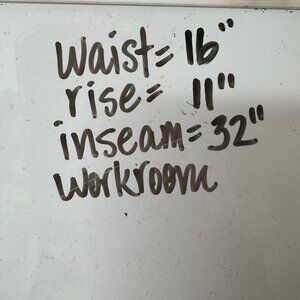 waist= 16"
rise= 11"
inseam= 32"
workroom